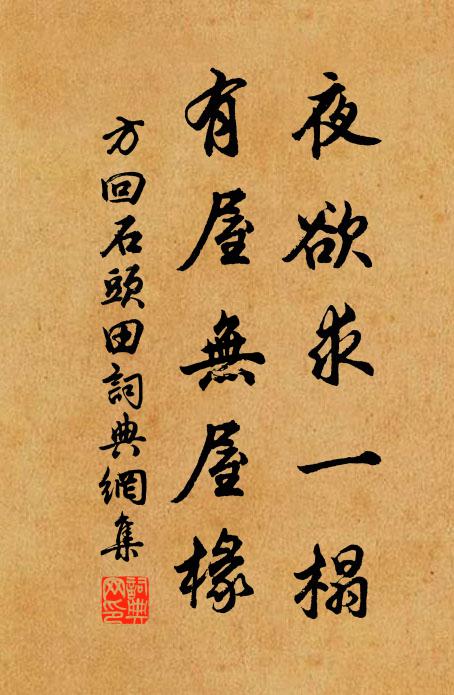 夜欲求一榻
有屋無屋椽
方回石頭田詞典網集
詞典網印